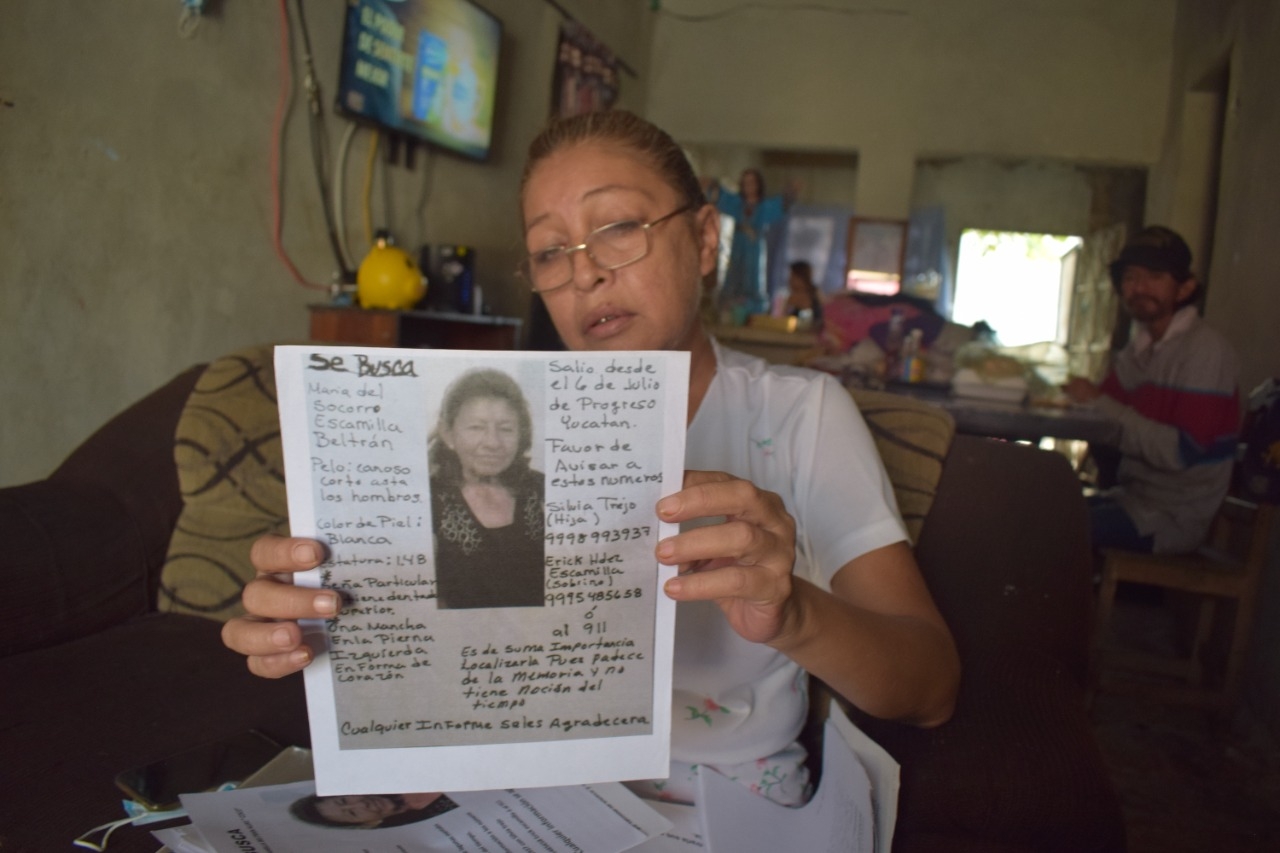 EL PODER
DE SENTIRTE
MEJOR
Se BUSCA
Maria del
Socorro
Escamilla
Beltrán
Pelo: canoso
Corto asta
los hombros.
Color de Piel:
Blanca
statura: 1.48
eña Particular
uperior.
Una Mancha
En la Pierna
Izquierda
En Forma de
Corazón
Salio desde
el 6 de Julio
de Progreso
Yucatan.
Favor de
Avisar a
estos numeros
Silvia Trejo
(Hija)
9998993937
Erick Hdez
Escamilla
(Sobrino)
9995485658
ó
al 911
Es de suma Importancia
Localizarla Pues padece
de la Memoria y no
tiene noción del
tiempo
Cualquier Informe Seles Agradecera
USCA